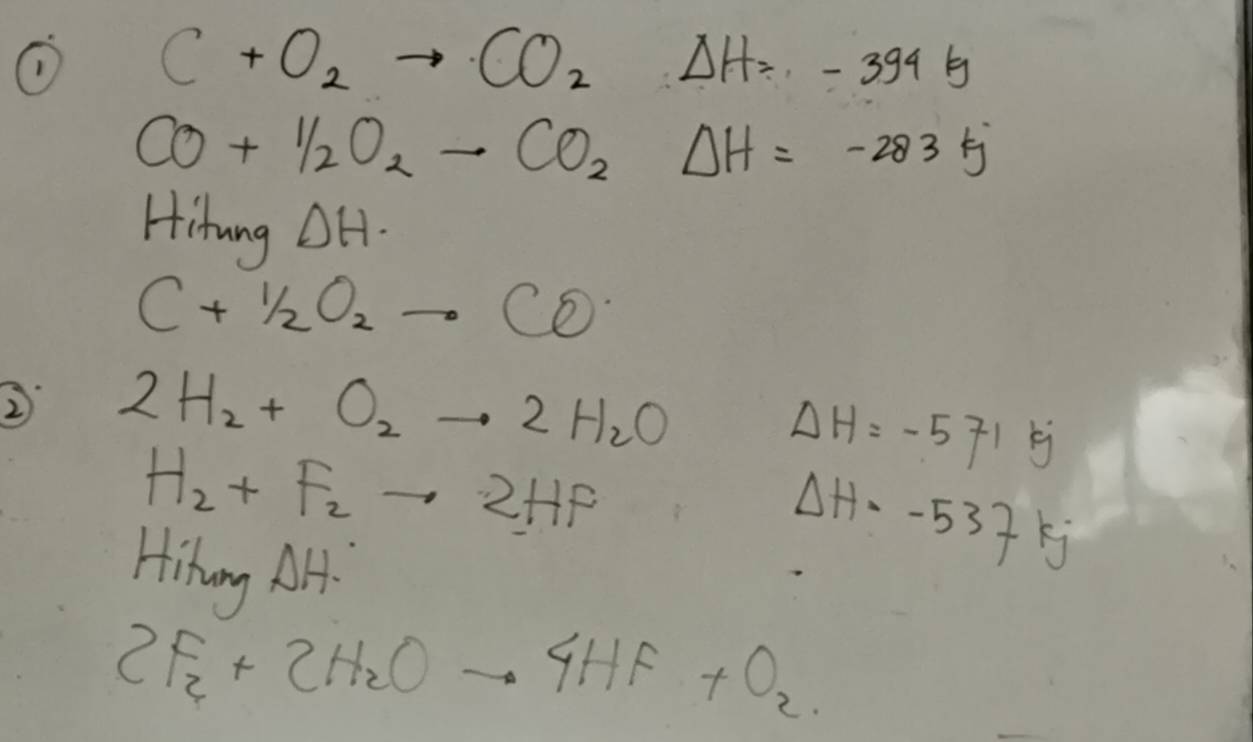 ① C + O₂ → CO₂ ΔH = - 394 kj
CO + ½O₂ → CO₂ ΔH = -283 kj
Hitung ΔH.
C + ½O₂ → CO
② 2H₂ + O₂ → 2H₂O ΔH = -571 kj
H₂ + F₂ → 2HF ΔH = -537 kj
Hitung ΔH.
2F₂ + 2H₂O → 4HF + O₂.